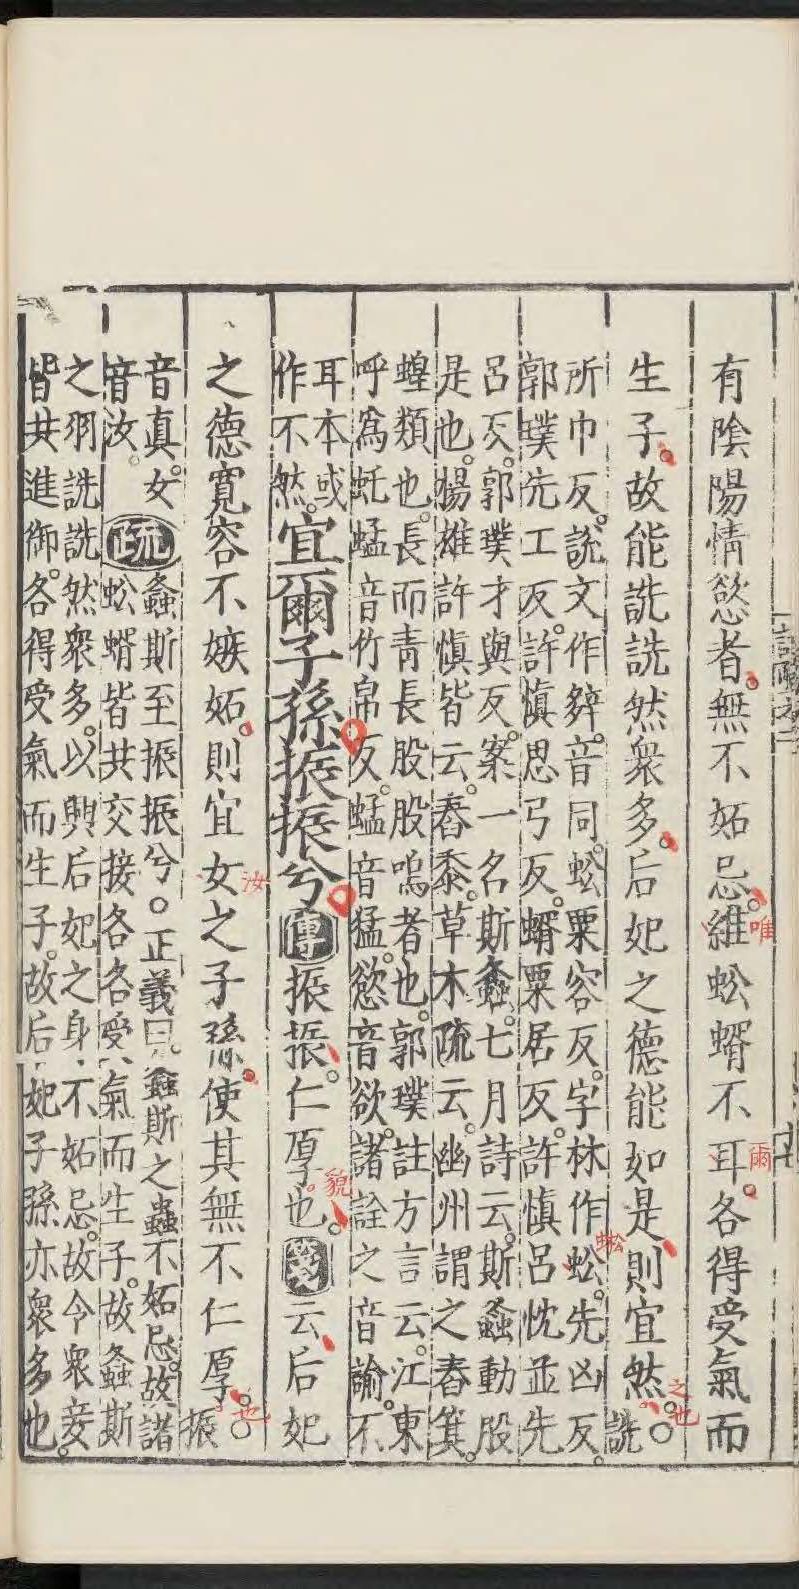 有陰陽情慾者無不妬忌維蚣蝑不耳各得受氣而
唯
爾
生子故能詵詵然衆多后妃之德能如是則宜然○詵
之也
所巾反說文作𨐔音同蚣粟容反字林作蚣先凶反
蜙
郭璞先工反許愼思弓反蝑粟居反許愼呂忱並先
呂反郭璞才與反案一名斯螽七月詩云斯螽動股
是也楊雄許愼皆云舂黍草木疏云幽州謂之舂箕
蝗類也長而青長股股鳴者也郭璞註方言云江東
呼爲虴蜢音竹帛反蜢音猛慾音欲諸詮之音諭不
耳本或
作不然
宜爾子孫振振兮傳振振仁厚也箋云后妃
貌
之德寬容不嫉妬則宜女之子孫使其無不仁厚○振
汝
也
音真女
音汝
疏
螽斯至振振兮○正義曰螽斯之蟲不妬忌故諸
蚣蝑皆共交接各各受氣而生子故螽斯
之羽詵詵然衆多以興后妃之身不妬忌故令衆妾
皆共進御各得受氣而生子故后妃子孫亦衆多也